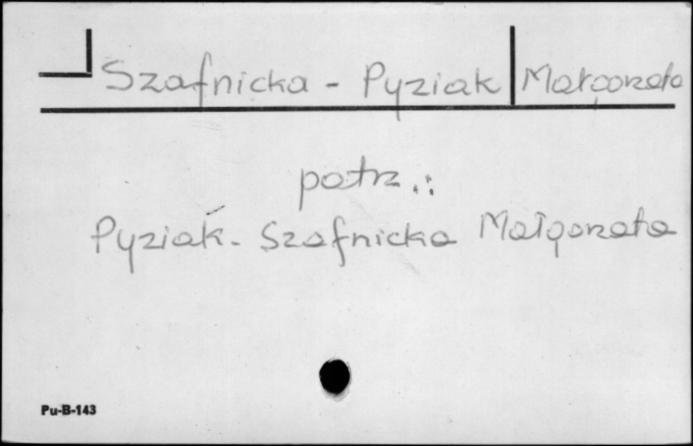 Szafnicka - Pyziak Małgorzata
patrz.:
Pyziak - Szafnicka Małgorzata
Pu-B-143